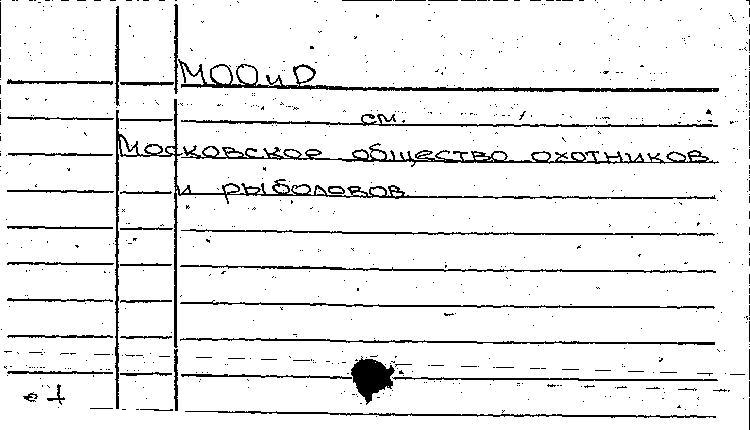 МООиР
см.
Московское общество охотников
и рыболовов